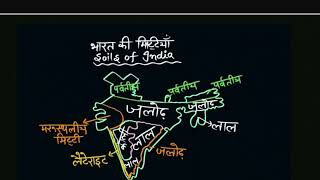 भारत की मिट्टियाँ
Soils of India
पर्वतीय
पर्वतीय
पर्वतीय
जलोढ़
जलोढ़
मरुस्थलीय
मिट्टी
लाल
लाल
लैटेराइट
लाल
जलोढ़